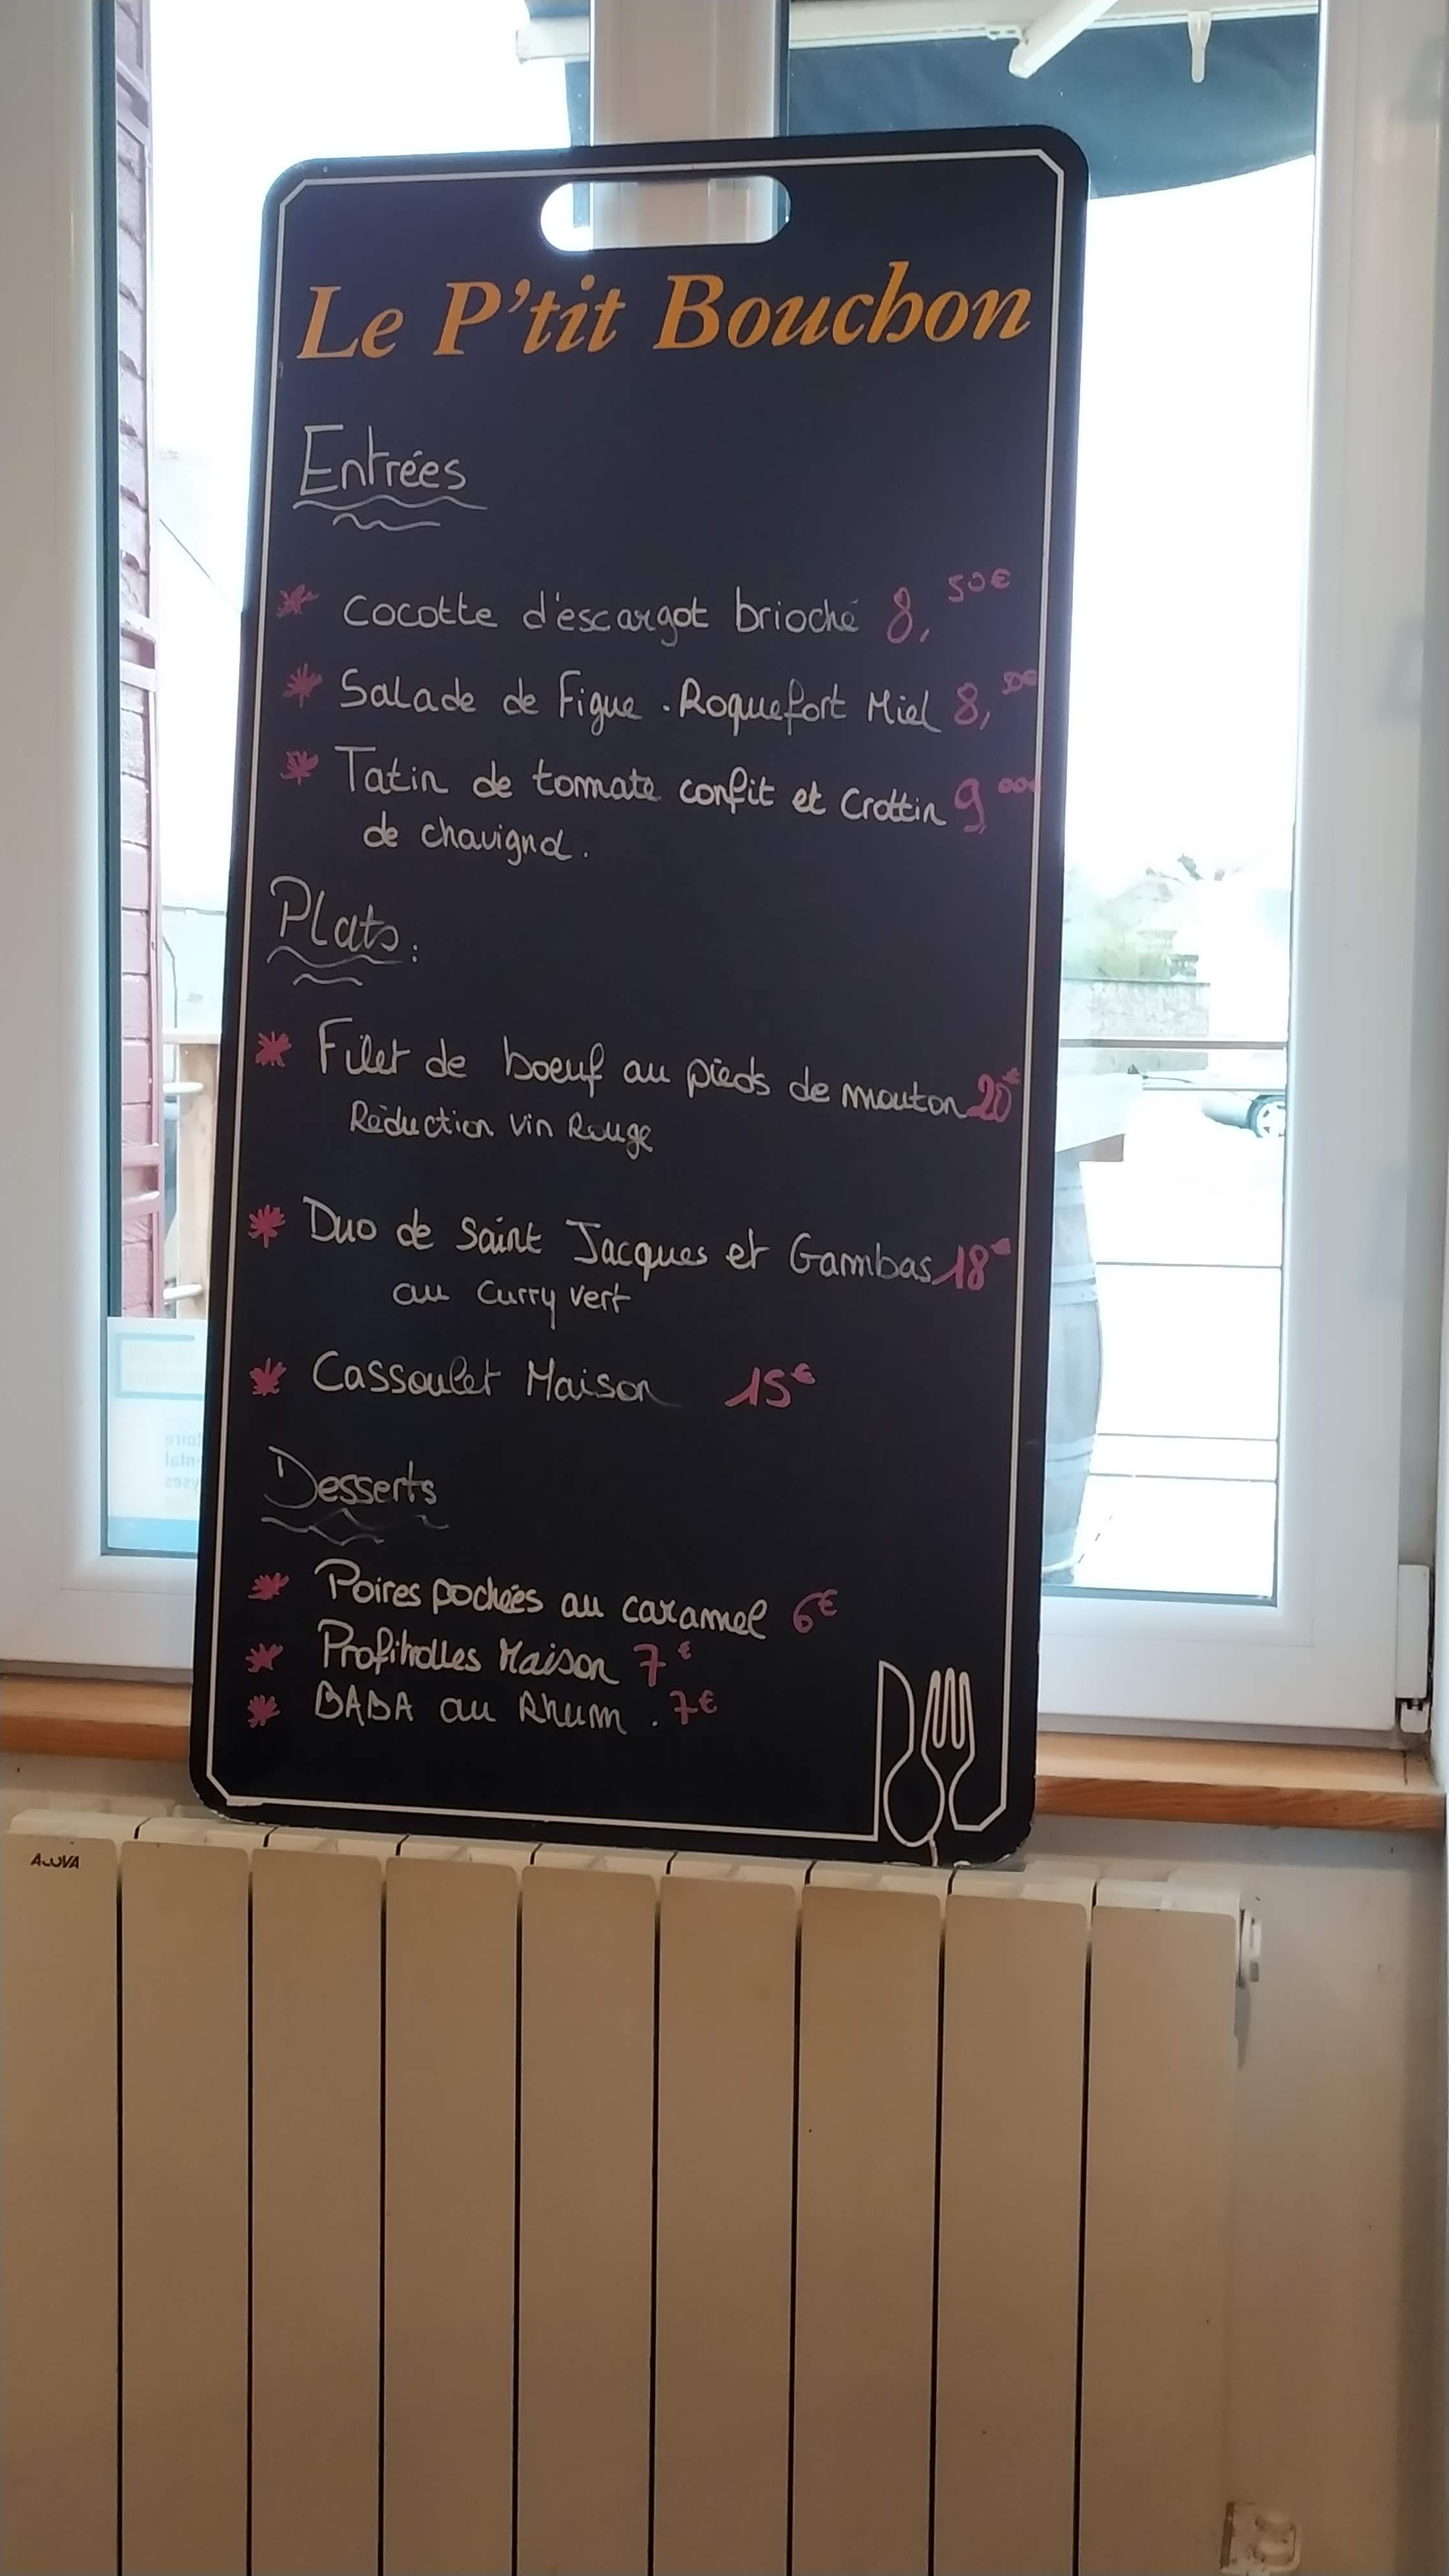 Le P'tit Bouchon
Entrées
* Cocotte d'escargot brioché 8,50€
* Salade de Figue . Roquefort Miel 8,50€
* Tatin de tomate confit et Crottin 9,00€
de chavignol.
Plats:
* Filet de boeuf au pieds de mouton 20€
Réduction Vin Rouge
* Duo de Saint Jacques et Gambas 18€
au Curry vert
* Cassoulet Maison 15€
Desserts
* Poires pochées au caramel 6€
* Profitrolles Maison 7€
* BABA au Rhum . 7€